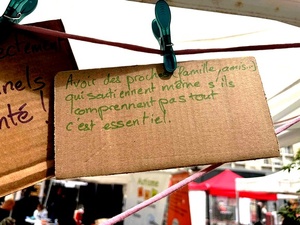 ectement
nels
nté !
Avoir des proches (famille, amis)
qui soutiennent même s'ils
comprennent pas tout
c'est essentiel.